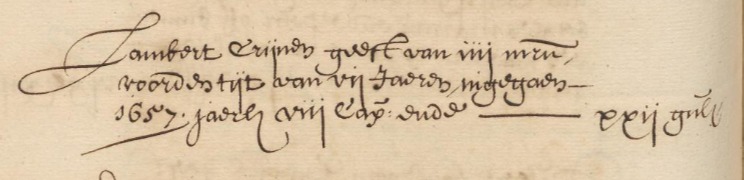 Lambert Crijnen geeft van iiij mrū,
voorden tijt van vij Jaeren, ingegaen
1657. jaerlx viij Cap: ende — xxij gul